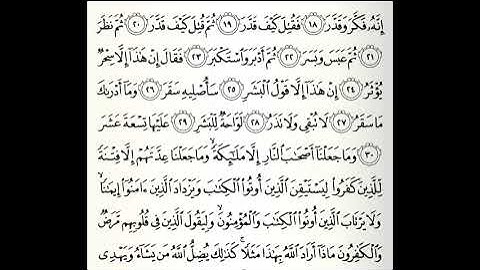 إِنَّهُۥ فَكَّرَ وَقَدَّرَ ١٨ فَقُتِلَ كَيْفَ قَدَّرَ ١٩ ثُمَّ قُتِلَ كَيْفَ قَدَّرَ ٢٠ ثُمَّ نَظَرَ
٢١ ثُمَّ عَبَسَ وَبَسَرَ ٢٢ ثُمَّ أَدْبَرَ وَٱسْتَكْبَرَ ٢٣ فَقَالَ إِنْ هَٰذَآ إِلَّا سِحْرٌ
يُؤْثَرُ ٢٤ إِنْ هَٰذَآ إِلَّا قَوْلُ ٱلْبَشَرِ ٢٥ سَأُصْلِيهِ سَقَرَ ٢٦ وَمَآ أَدْرَىٰكَ
مَا سَقَرُ ٢٧ لَا تُبْقِى وَلَا تَذَرُ ٢٨ لَوَّاحَةٌ لِّلْبَشَرِ ٢٩ عَلَيْهَا تِسْعَةَ عَشَرَ
٣٠ وَمَا جَعَلْنَآ أَصْحَٰبَ ٱلنَّارِ إِلَّا مَلَٰٓئِكَةً ۙ وَمَا جَعَلْنَا عِدَّتَهُمْ إِلَّا فِتْنَةً
لِّلَّذِينَ كَفَرُوا۟ لِيَسْتَيْقِنَ ٱلَّذِينَ أُوتُوا۟ ٱلْكِتَٰبَ وَيَزْدَادَ ٱلَّذِينَ ءَامَنُوٓا۟ إِيمَٰنًا ۙ
وَلَا يَرْتَابَ ٱلَّذِينَ أُوتُوا۟ ٱلْكِتَٰبَ وَٱلْمُؤْمِنُونَ ۙ وَلِيَقُولَ ٱلَّذِينَ فِى قُلُوبِهِم مَّرَضٌ
وَٱلْكَٰفِرُونَ مَاذَآ أَرَادَ ٱللَّهُ بِهَٰذَا مَثَلًا ۚ كَذَٰلِكَ يُضِلُّ ٱللَّهُ مَن يَشَآءُ وَيَهْدِى